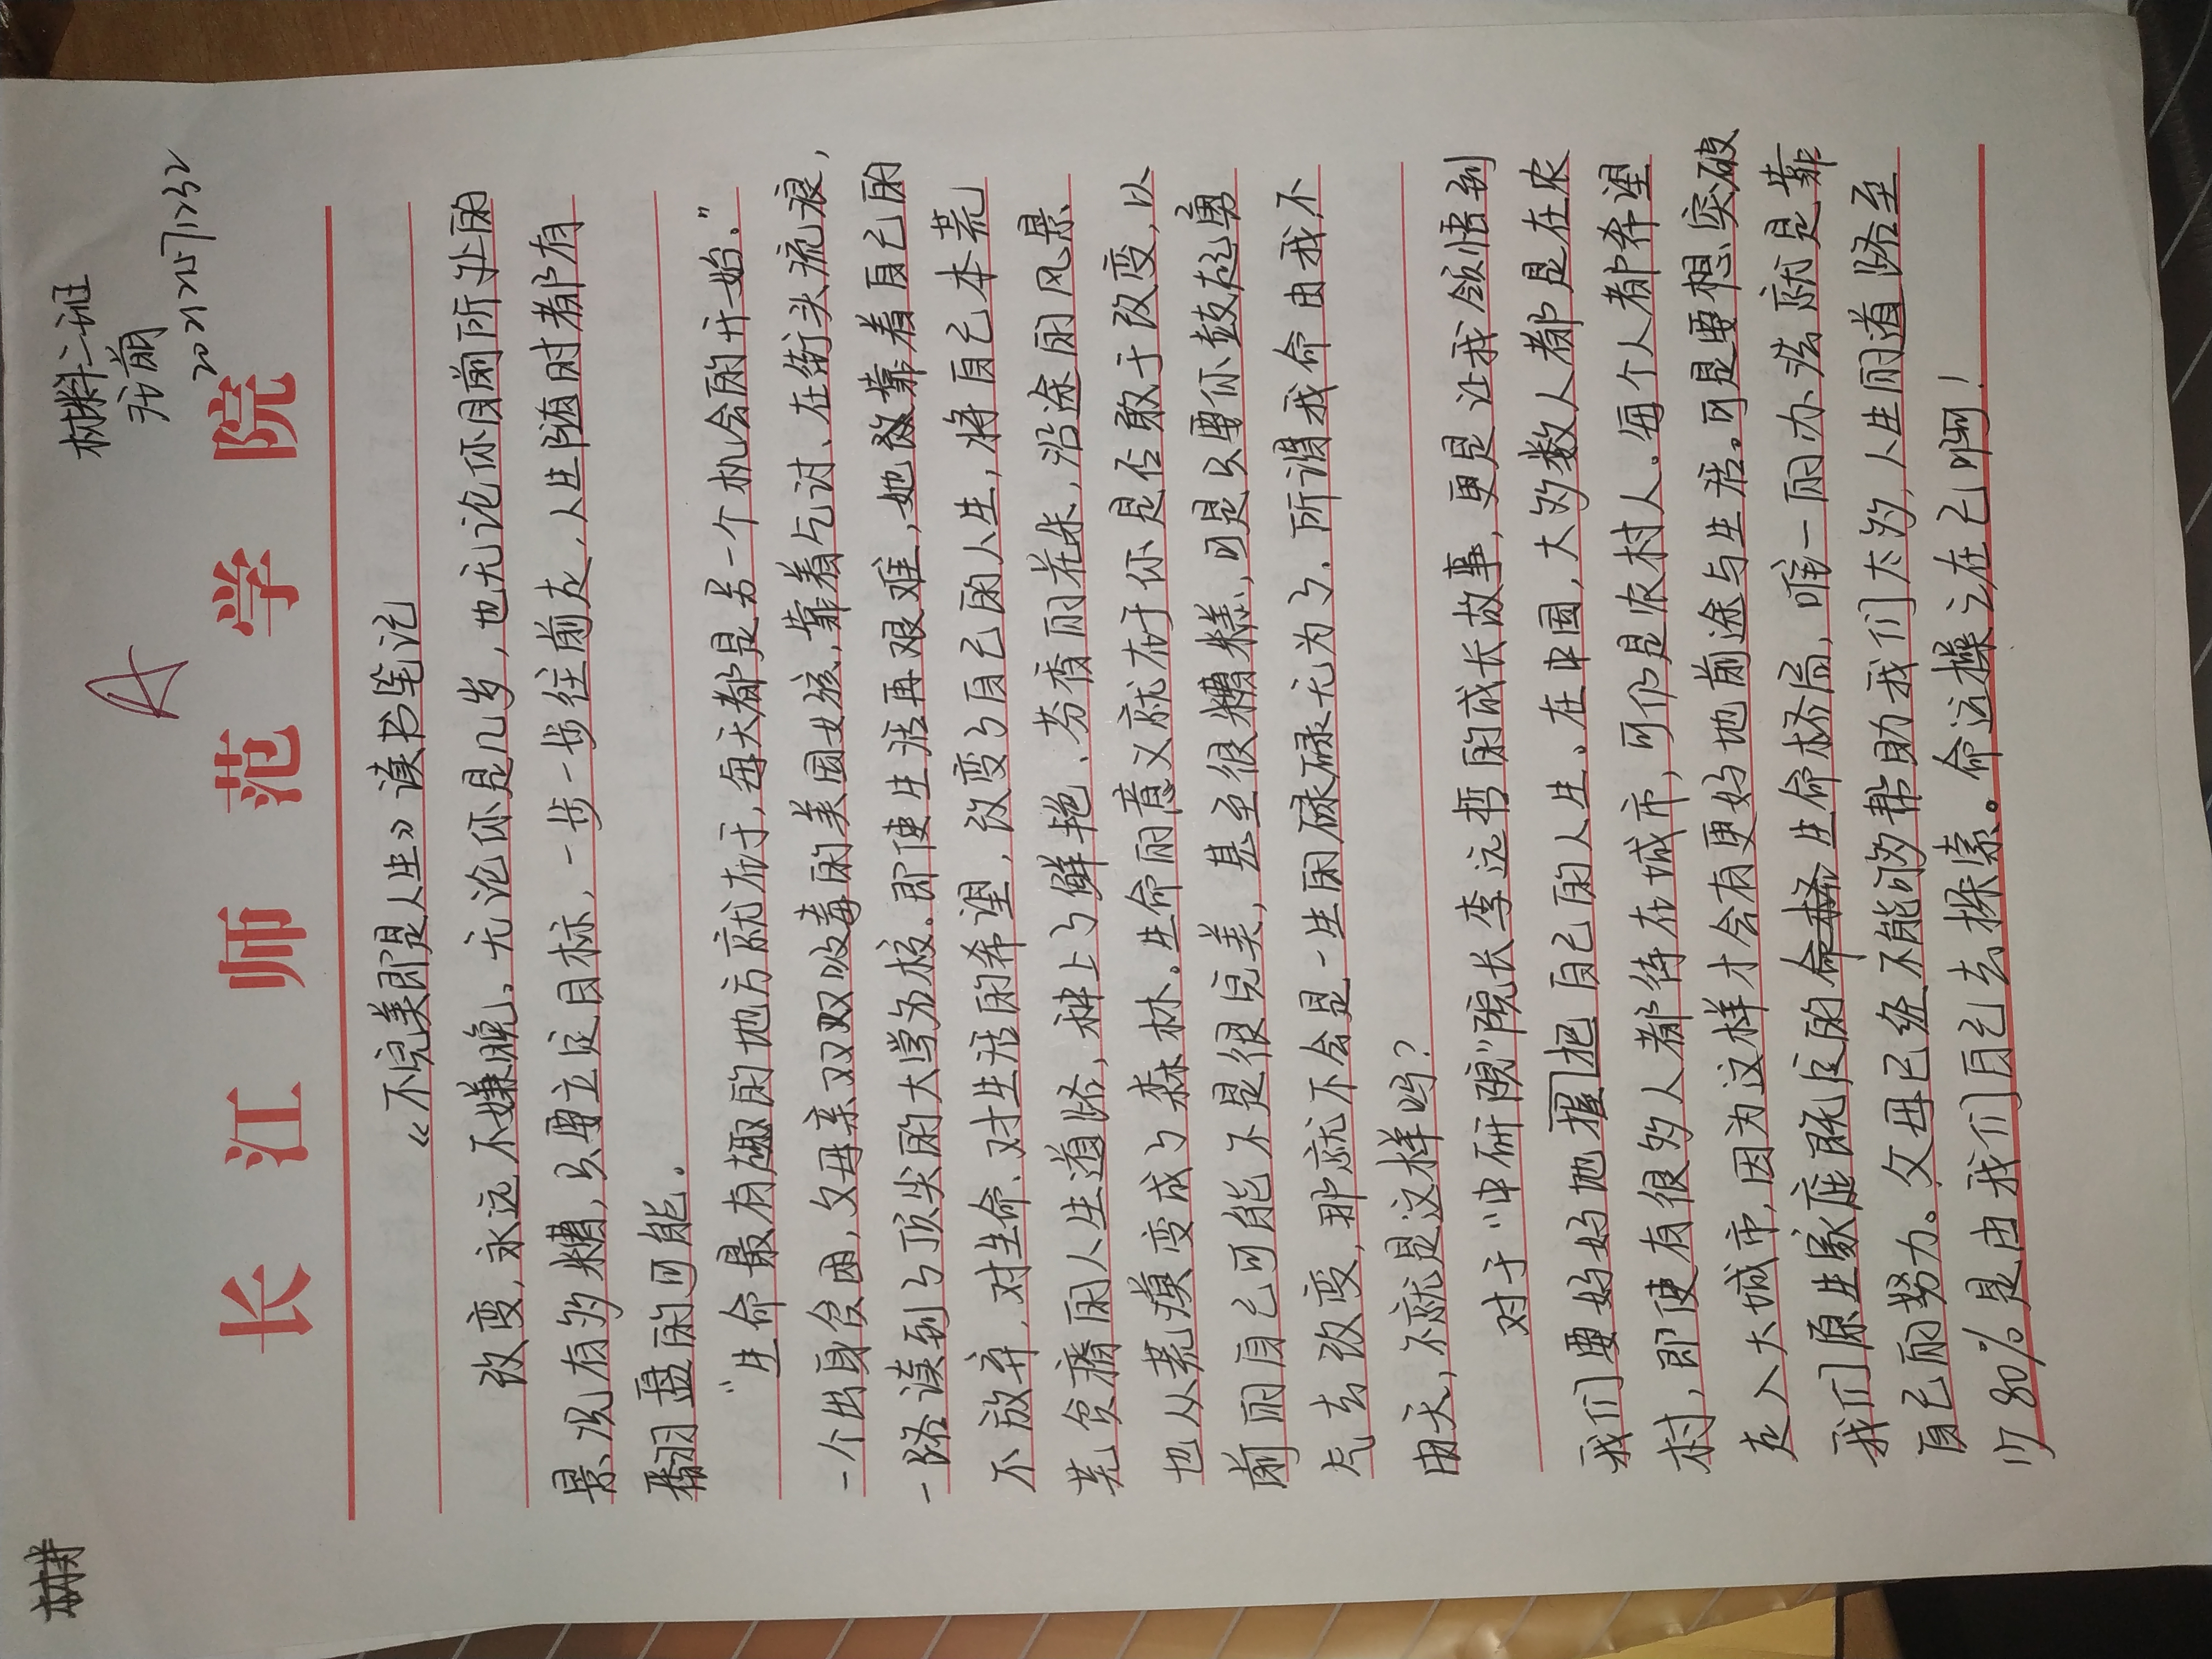 材料二班
A
20212571232
长江师范学院
《不完美即是人生》读书笔记
改变,永远不嫌晚。无论你是几岁,也无论你目前所处的
景况有多糟,只要立定目标,一步一步往前走,人生随时都有
翻盘的可能。
“生命最有趣的地方就在于,每天都是另一个机会的开始.”
一个出身贫困,父母亲双双吸毒的美国女孩,靠着乞讨、在街头流浪,
一路读到了顶尖的大学名校.即使生活再艰难,她依靠着自己的
不放弃,对生命、对生活的希望,改变了自己的人生,将自己本荒
芜贫瘠的人生道路,种上了鲜艳、芬香的花朵,沿途的风景
也从荒漠变成了森林。生命的意义就在于你是否敢于改变,以
前的自己可能不是很完美,甚至很糟糕,可是只要你鼓起勇
气去改变,那就不会是一生的碌碌无为了.所谓我命由我不
由天,不就是这样吗?
对于“中研院”院长李远哲的成长故事,更是让我领悟到
我们要好好地握把自己的人生。在中国,大多数人都是在农
村,即使有很多人都待在城市,可仍是农村人。每个人都希望
走入大城市,因为这样才会有更好地前途与生活。可是要想突破
我们原生家庭既定的生命格局,唯一的办法就是靠
自己的努力。父母已经不能够帮助我们太多,人生的道路至
少80%是由我们自己去探索。命运操之在己啊!